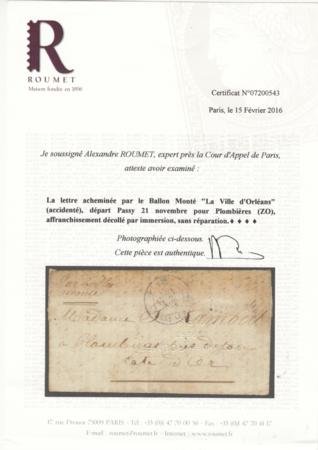 R
ROUMET
Maison fondée en 1896
Certificat N°07200543
Paris, le 15 Février 2016
Je soussigné Alexandre ROUMET, expert près la Cour d'Appel de Paris,
atteste avoir examiné :
La lettre acheminée par le Ballon Monté "La Ville d'Orléans"
(accidenté), départ Passy 21 novembre pour Plombières (ZO),
affranchissement décollé par immersion, sans réparation.♦ ♦ ♦ ♦
Photographiée ci-dessous.
Cette pièce est authentique.
Par Ballon
monté
Madame
à Plombières près Dijon
Côte d'Or
17 rue Drouot 75009 PARIS - Tél : +33 (0)1 47 70 00 56 - Fax : +33 (0)1 47 70 41 17
E-mail : roumet@roumet.fr - Internet : www.roumet.fr